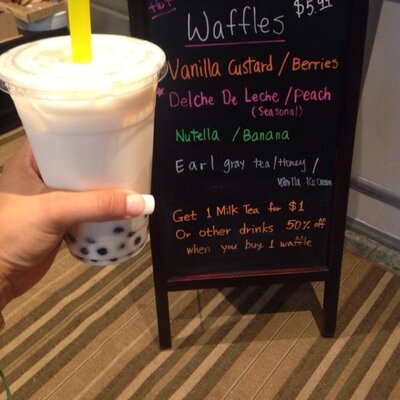 Hot
$5.99
Waffles
Vanilla Custard / Berries
Delche De Leche / Peach
(Seasonal)
Nutella / Banana
Earl gray tea / Honey /
Vanilla Ice Cream
Get 1 Milk Tea for $1
Or other drinks 50% off
when you buy 1 waffle